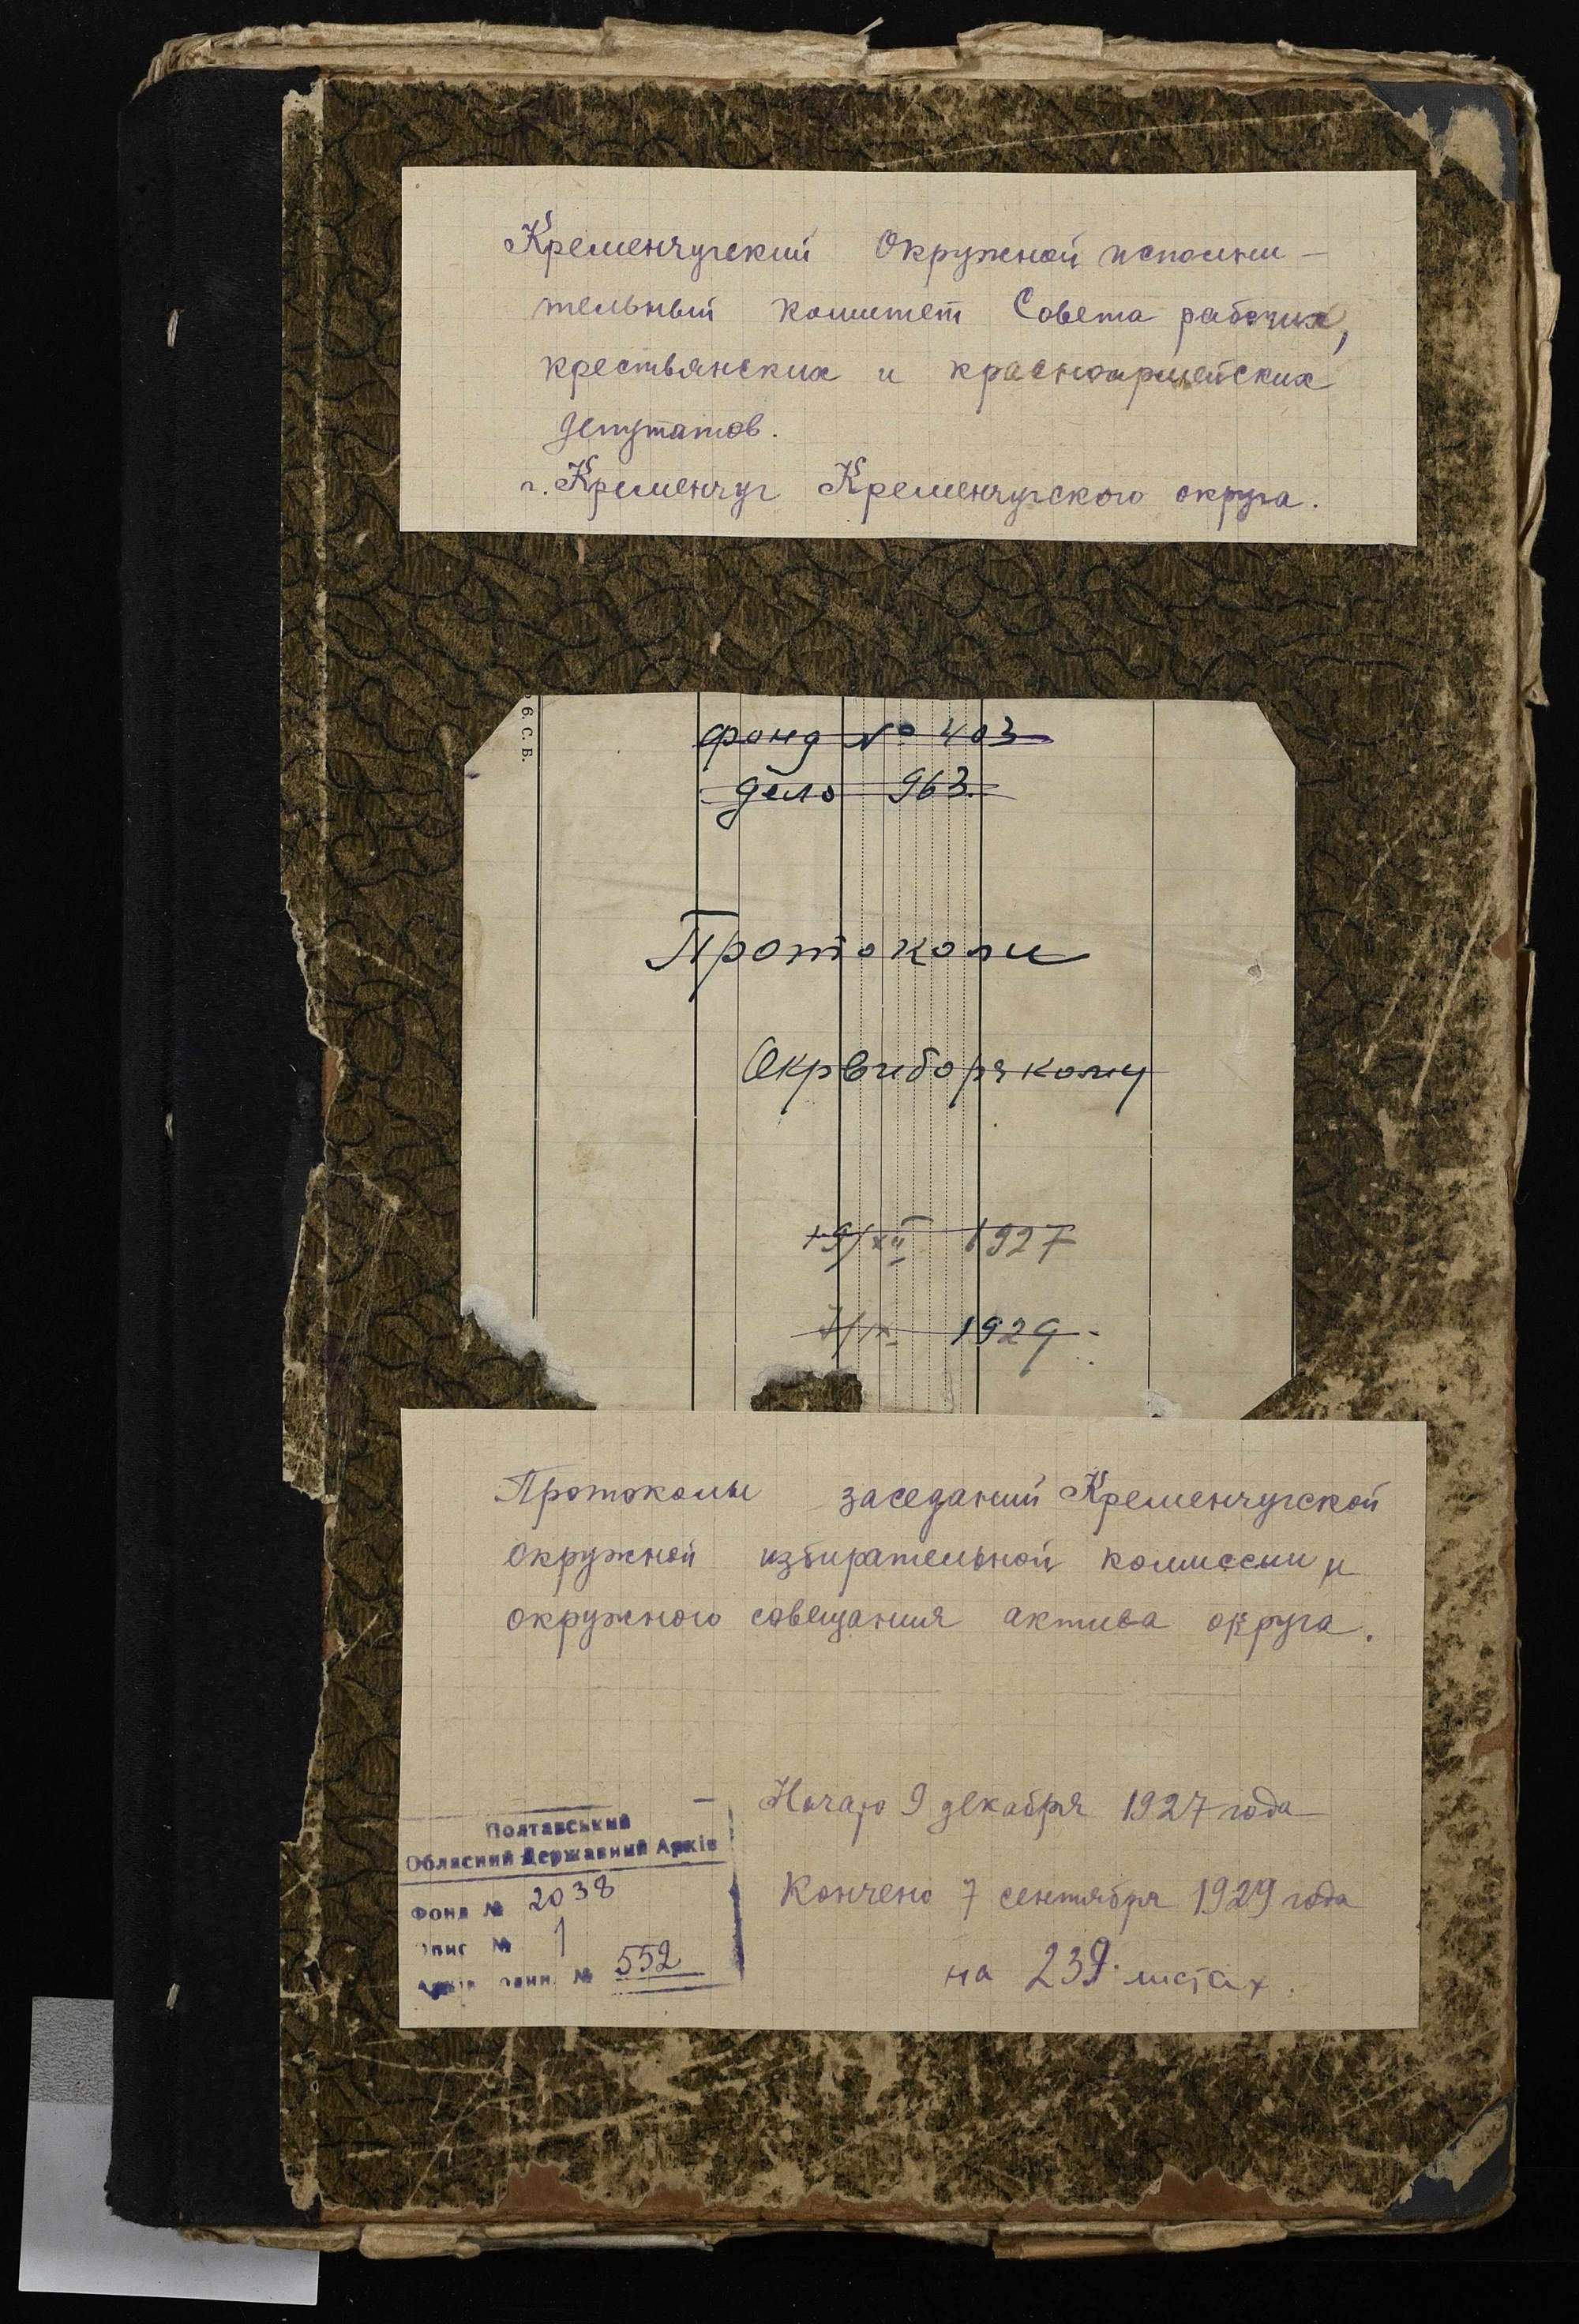 Кременчугский Окружной исполни-
тельный комитет Совета рабочих,
крестьянских и красноармейских
депутатов.
г. Кременчуг Кременчугского округа.
6. С. В.
фонд № 403
дело 963.
Протоколи
Окрвиборчкому
19/XII 1927
7/IX 1929.
Протоколы заседаний Кременчугской
окружной избирательной комиссии и
окружного совещания актива округа.
Начато 9 декабря 1927 года
Кончено 7 сентября 1929 года
на 239 листах.
Полтавський
Обласний Державний Архів
Фонд № 2038
Опис № 1
Архів. один. № 552